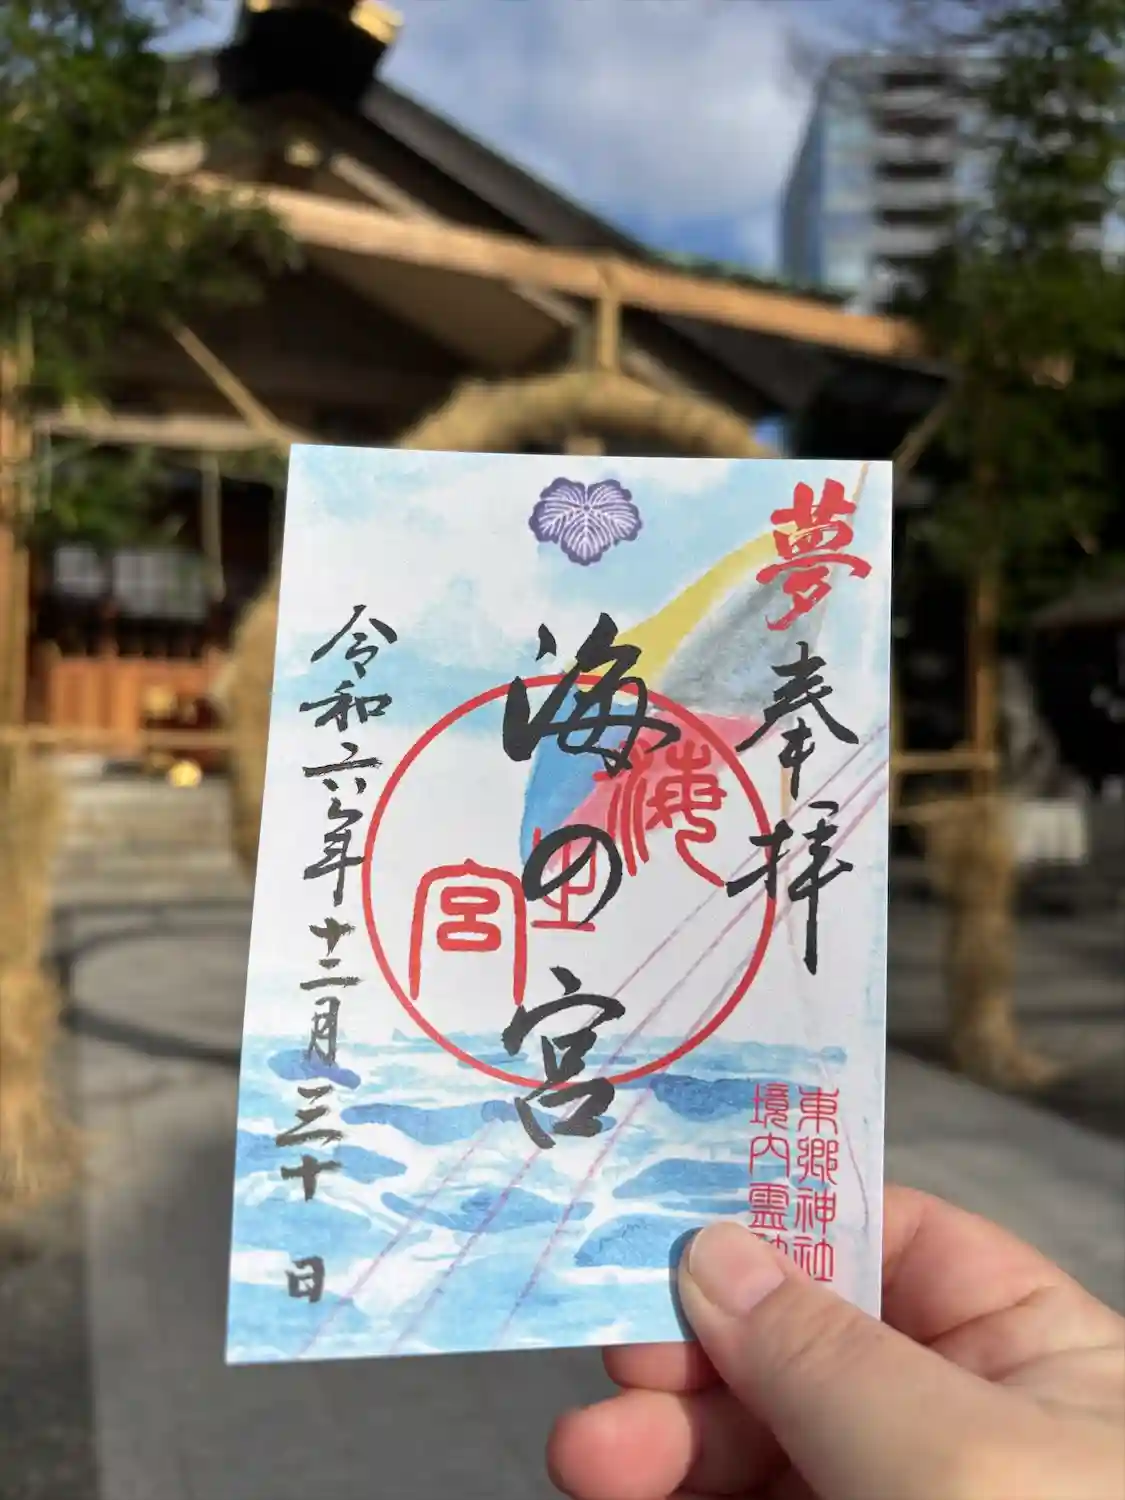 夢
奉拝
海の宮
海
之
宮
令和六年十二月三十日
東郷神社
境内霊社